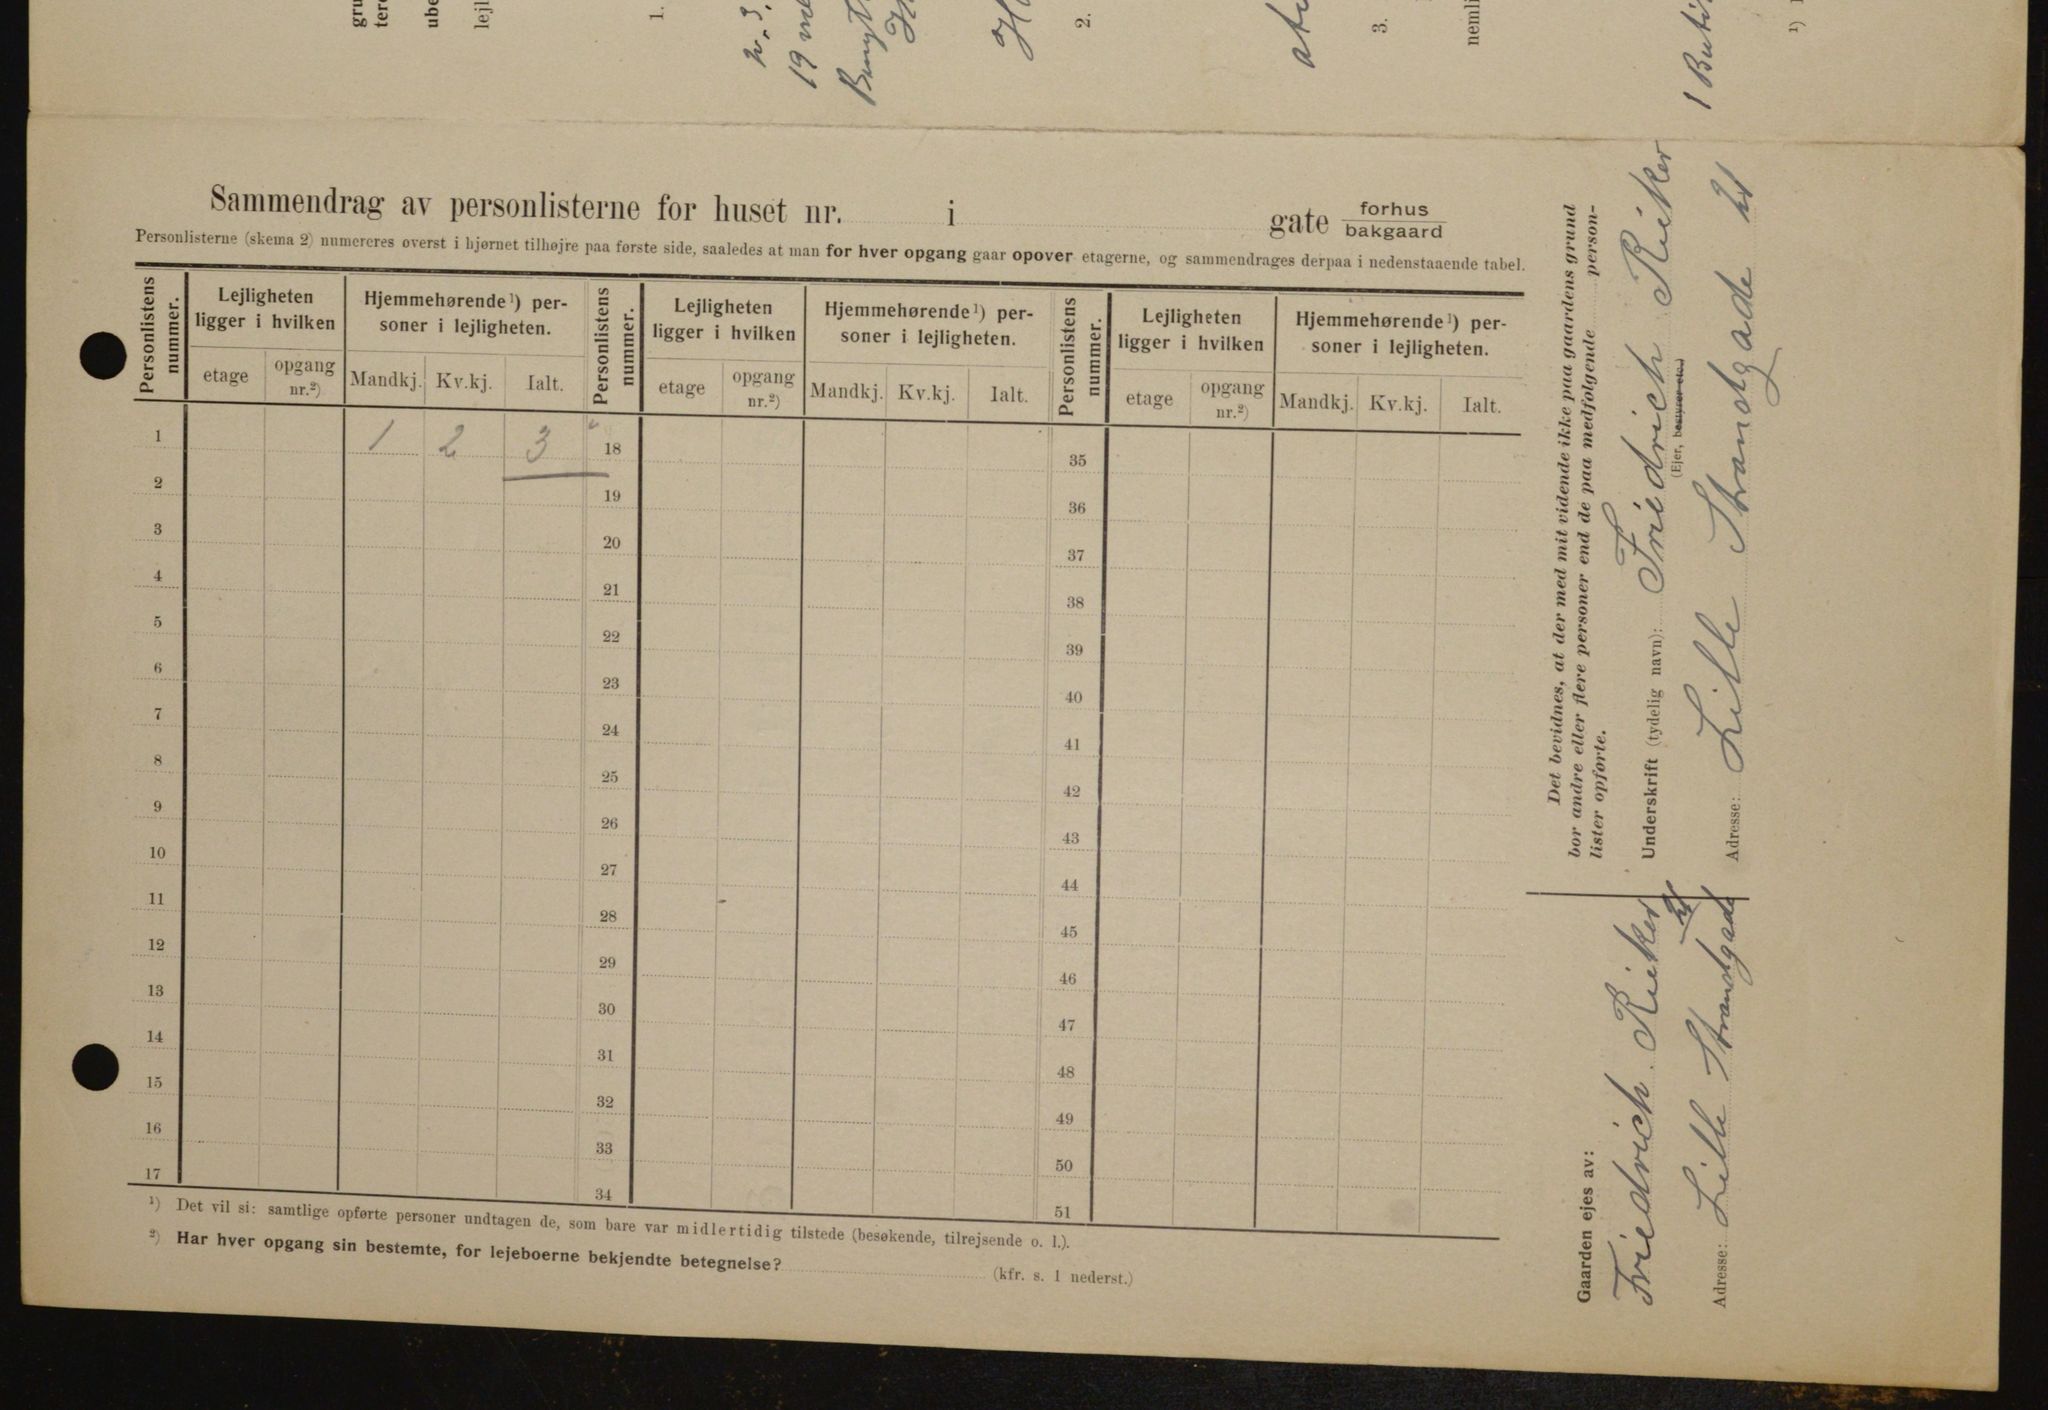 gru
tere
ube
lejl
1.
2.
3.
nemli
1)
Sammendrag av personlisterne for huset nr. i gate forhus
bakgaard
Personlisterne (skema 2) numereres øverst i hjørnet tilhøjre paa første side, saaledes at man for hver opgang gaar opover etagerne, og sammendrages derpaa i nedenstaaende tabel.
Personlistens nummer. Lejligheten ligger i hvilken Hjemmehørende¹) personer i lejligheten. Personlistens nummer. Lejligheten ligger i hvilken Hjemmehørende¹) personer i lejligheten. Personlistens nummer. Lejligheten ligger i hvilken Hjemmehørende¹) personer i lejligheten.
etage opgang nr.²) Mandkj. Kv.kj. Ialt. etage opgang nr.²) Mandkj. Kv.kj. Ialt. etage opgang nr.²) Mandkj. Kv.kj. Ialt.
1 1 2 3 18 35
2 19 36
3 20 37
4 21 38
5 22 39
6 23 40
7 24 41
8 25 42
9 26 43
10 27 44
11 28 45
12 29 46
13 30 47
14 31 48
15 32 49
16 33 50
17 34 51
¹) Det vil si: samtlige opførte personer undtagen de, som bare var midlertidig tilstede (besøkende, tilrejsende o. l.).
²) Har hver opgang sin bestemte, for lejeboerne bekjendte betegnelse? (kfr. s. 1 nederst.)
Gaarden ejes av:
Friedrich Rieker
Adresse: Lille Strandgade 21
Det bevidnes, at der med mit vidende ikke paa gaardens grund
bor andre eller flere personer end de paa medfølgende person-
lister opførte.
Underskrift (tydelig navn): Friedrich Rieker
(Ejer, bestyrer etc.)
Adresse: Lille Strandgade 21